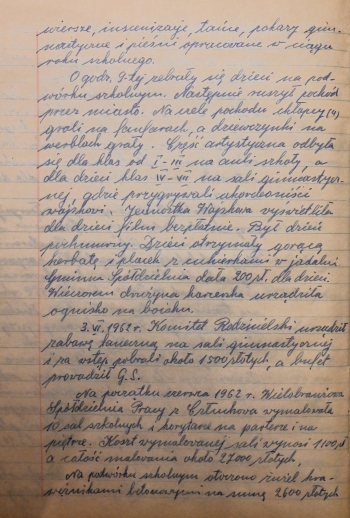 wiersze, inscenizacje, tańce, pokazy gim-
nastyczne i pieśni opracowane w ciągu
roku szkolnego.
O godz. 9-tej zebrały się dzieci na pod-
wórku szkolnym. Następnie ruszył pochód
przez miasto. Na czele pochodu chłopcy (4)
grali na fanfarach, a dziewczynki na
werblach grały. Część artystyczna odbyła
się dla klas od I-III na auli szkoły, a
dla dzieci klas IV-VII na sali gimnastycz-
nej, gdzie przygrywali akordeoniści
wojskowi. Jednostka Wojskowa wyświetliła
dla dzieci filmy bezpłatnie. Był dzień
pochmurny. Dzieci otrzymały gorącą
herbatę i placek z cukierkami w jadalni
Gminna Spółdzielnia dała 200 zł. dla dzieci.
Wieczorem drużyna harcerska urządziła
ognisko na boisku.
3.VI.1962r. Komitet Rodzicielski urządził
zabawę taneczną na sali gimnastycznej
i za wstęp pobrali około 1500 złotych, a bufet
prowadził G.S.
Na początku czerwca 1962 r. Wielobranżowa
Spółdzielnia Pracy z wymalowała
10 sal szkolnych i korytarze na parterze i na
piętrze. Koszt wymalowanej sali wynosi 1100 zł
a całość malowania około 27000 złotych,
Na podwórku szkolnym otoczono żużel kra-
wężnikami betonowymi na sumę 2600 złotych